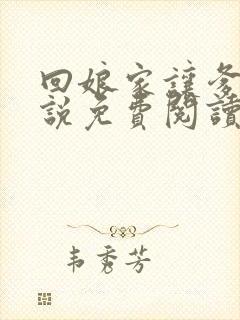 回娘家讓爹
說免費閱讀
韦秀芳